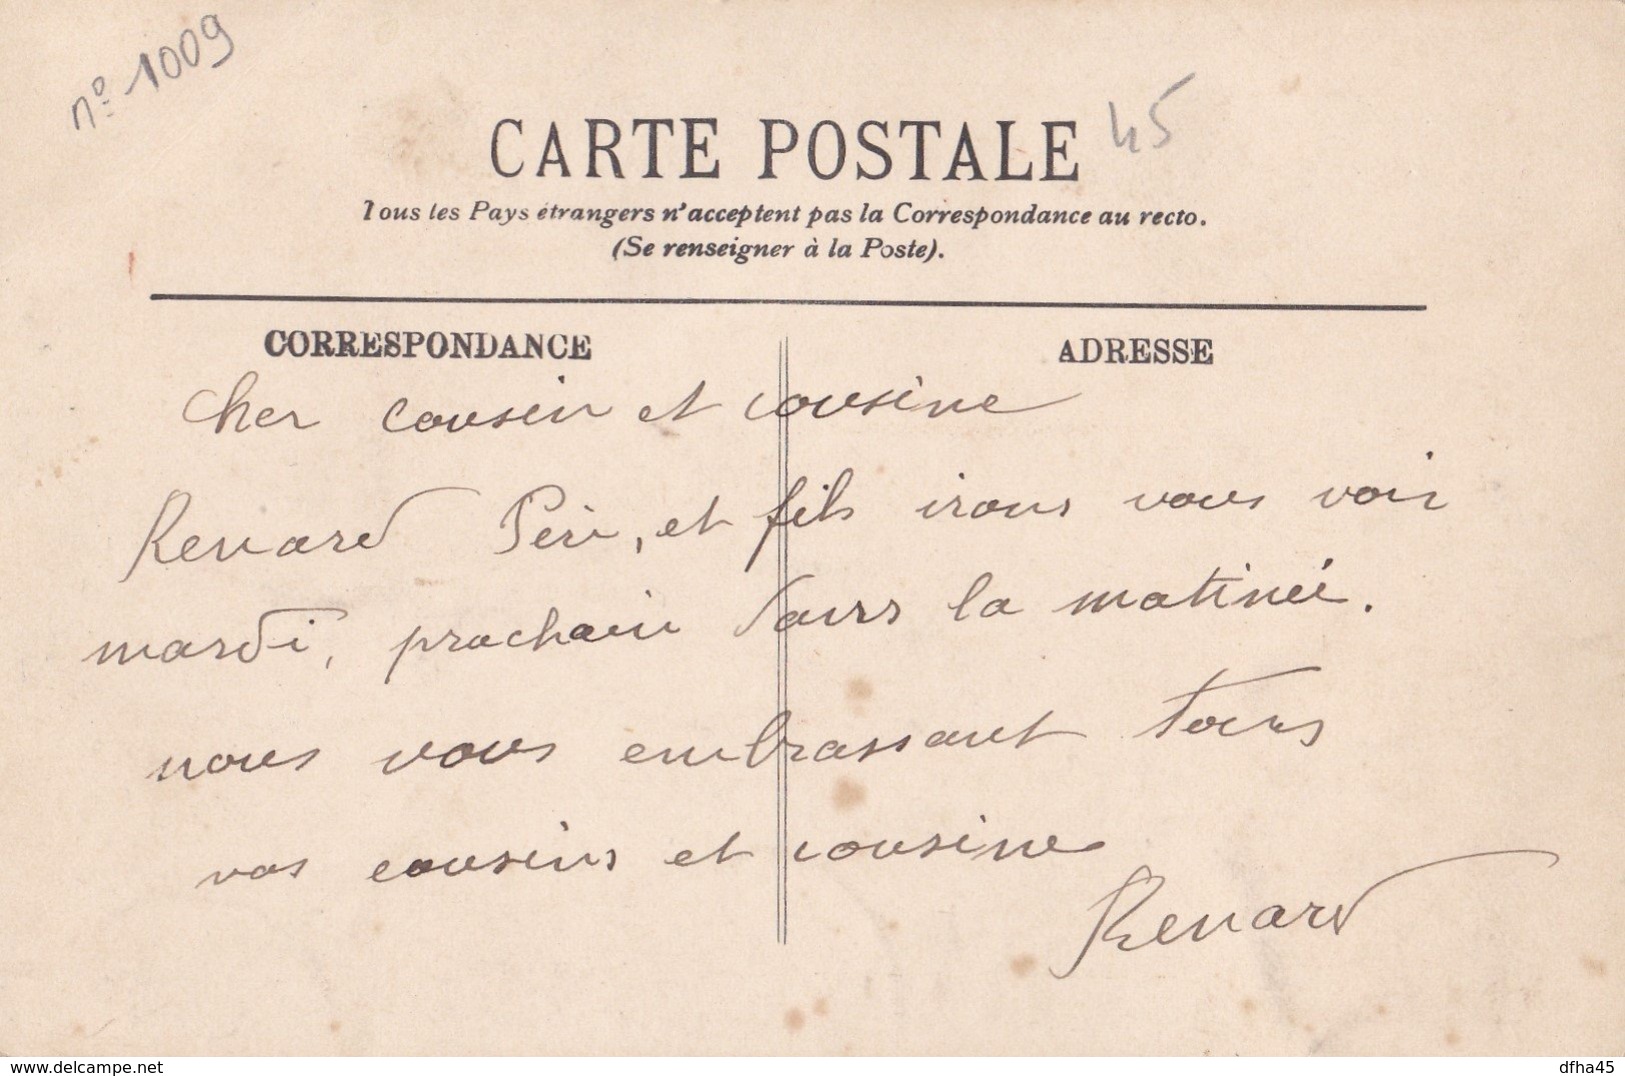 nº 1009
45
CARTE POSTALE
Tous les Pays étrangers n'acceptent pas la Correspondance au recto.
(Se renseigner à la Poste).
CORRESPONDANCE
ADRESSE
Cher cousin et cousine
Renard Père, et fils irons vous voir
mardi, prochain dans la matinée.
nous vous embrassant tous
vos cousins et cousine
Renard
www.delcampe.net
dfha45